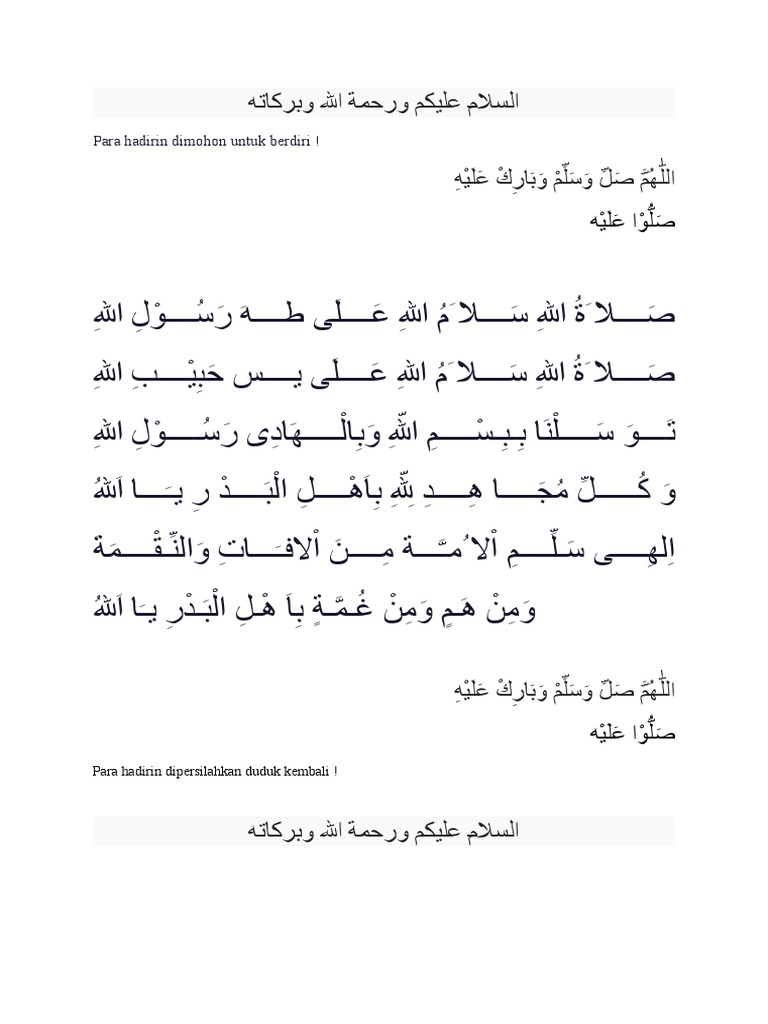 السلام عليكم ورحمة الله وبركاته
Para hadirin dimohon untuk berdiri !
اللّٰهُمَّ صَلِّ وَسَلِّمْ وَبَارِكْ عَلَيْهِ
صَلُّوْا عَلَيْه
صَـــلاَةُ اللهِ سَـــلاَمُ اللهِ عَـــلَى طـــهَ رَسُـــوْلِ اللهِ
صَـــلاَةُ اللهِ سَـــلاَمُ اللهِ عَـــلَى يـــس حَبِيْـــبِ اللهِ
تَـــوَ سَـــلْنَا بِـبِـسْـــمِ اللّهِ وَبِالْـــهَادِى رَسُـــوْلِ اللهِ
وَ كُـــلِّ مُجَـــا هِـــدِ لِلّهِ بِاَهْـــلِ الْبَـــدْ رِ يـَــا اَللهُ
اِلهِـــى سَـلِّـــمِ اْلاُمـَّــة مِـــنَ اْلافـَــاتِ وَالنِّـقْـــمَةَ
وَمِنْ هَـمٍ وَمِنْ غُـمَّـةٍ بِاَ هْـلِ الْبَـدْرِ يـَا اَللهُ
اللّٰهُمَّ صَلِّ وَسَلِّمْ وَبَارِكْ عَلَيْهِ
صَلُّوْا عَلَيْه
Para hadirin dipersilahkan duduk kembali !
السلام عليكم ورحمة الله وبركاته